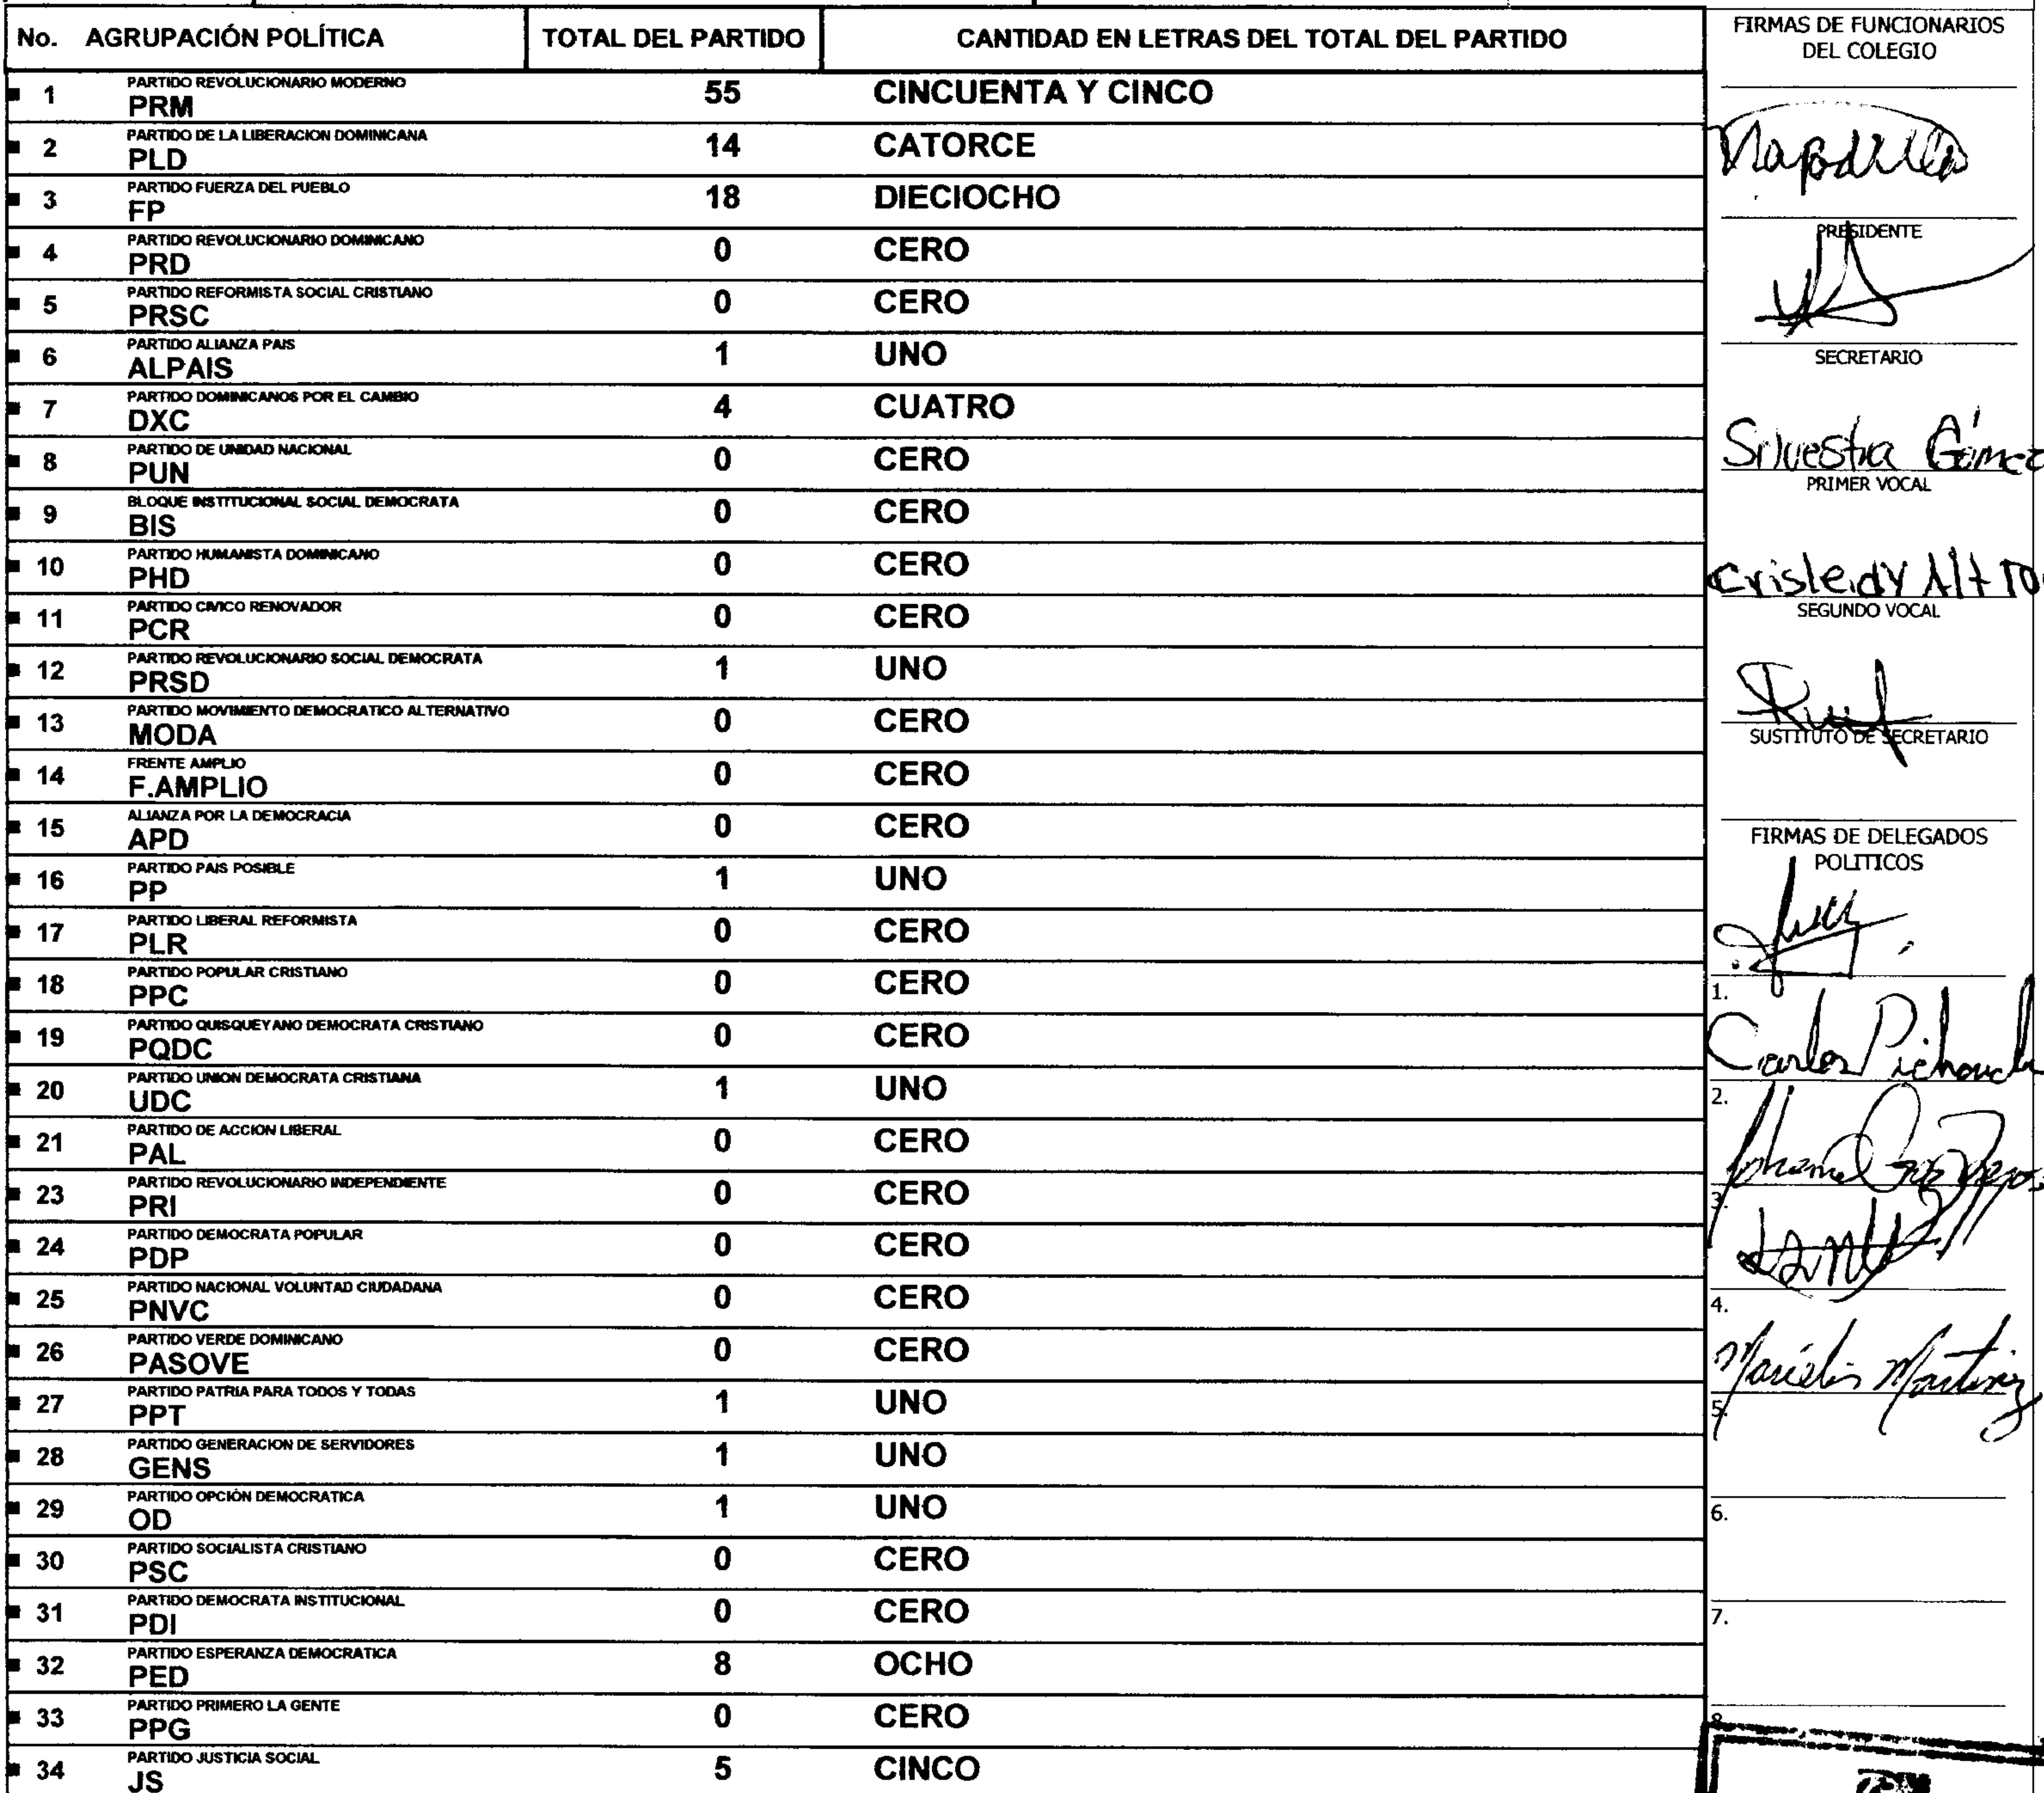 No. AGRUPACIÓN POLÍTICA TOTAL DEL PARTIDO CANTIDAD EN LETRAS DEL TOTAL DEL PARTIDO
PARTIDO REVOLUCIONARIO MODERNO
1 PRM 55 CINCUENTA Y CINCO
PARTIDO DE LA LIBERACION DOMINICANA
2 PLD 14 CATORCE
PARTIDO FUERZA DEL PUEBLO
3 FP 18 DIECIOCHO
PARTIDO REVOLUCIONARIO DOMINICANO
4 PRD 0 CERO
PARTIDO REFORMISTA SOCIAL CRISTIANO
5 PRSC 0 CERO
PARTIDO ALIANZA PAIS
6 ALPAIS 1 UNO
PARTIDO DOMINICANOS POR EL CAMBIO
7 DXC 4 CUATRO
PARTIDO DE UNIDAD NACIONAL
8 PUN 0 CERO
BLOQUE INSTITUCIONAL SOCIAL DEMOCRATA
9 BIS 0 CERO
PARTIDO HUMANISTA DOMINICANO
10 PHD 0 CERO
PARTIDO CIVICO RENOVADOR
11 PCR 0 CERO
PARTIDO REVOLUCIONARIO SOCIAL DEMOCRATA
12 PRSD 1 UNO
PARTIDO MOVIMIENTO DEMOCRATICO ALTERNATIVO
13 MODA 0 CERO
FRENTE AMPLIO
14 F.AMPLIO 0 CERO
ALIANZA POR LA DEMOCRACIA
15 APD 0 CERO
PARTIDO PAIS POSIBLE
16 PP 1 UNO
PARTIDO LIBERAL REFORMISTA
17 PLR 0 CERO
PARTIDO POPULAR CRISTIANO
18 PPC 0 CERO
PARTIDO QUISQUEYANO DEMOCRATA CRISTIANO
19 PQDC 0 CERO
PARTIDO UNION DEMOCRATA CRISTIANA
20 UDC 1 UNO
PARTIDO DE ACCION LIBERAL
21 PAL 0 CERO
PARTIDO REVOLUCIONARIO INDEPENDIENTE
23 PRI 0 CERO
PARTIDO DEMOCRATA POPULAR
24 PDP 0 CERO
PARTIDO NACIONAL VOLUNTAD CIUDADANA
25 PNVC 0 CERO
PARTIDO VERDE DOMINICANO
26 PASOVE 0 CERO
PARTIDO PATRIA PARA TODOS Y TODAS
27 PPT 1 UNO
PARTIDO GENERACION DE SERVIDORES
28 GENS 1 UNO
PARTIDO OPCIÓN DEMOCRATICA
29 OD 1 UNO
PARTIDO SOCIALISTA CRISTIANO
30 PSC 0 CERO
PARTIDO DEMOCRATA INSTITUCIONAL
31 PDI 0 CERO
PARTIDO ESPERANZA DEMOCRATICA
32 PED 8 OCHO
PARTIDO PRIMERO LA GENTE
33 PPG 0 CERO
PARTIDO JUSTICIA SOCIAL
34 JS 5 CINCO
FIRMAS DE FUNCIONARIOS
DEL COLEGIO
PRESIDENTE
SECRETARIO
Silvestra Gómez
PRIMER VOCAL
Crisleidy
SEGUNDO VOCAL
SUSTITUTO DE SECRETARIO
FIRMAS DE DELEGADOS
POLITICOS
1.
Carlos
2.
3.
4.
Martinez
5.
6.
7.
8.